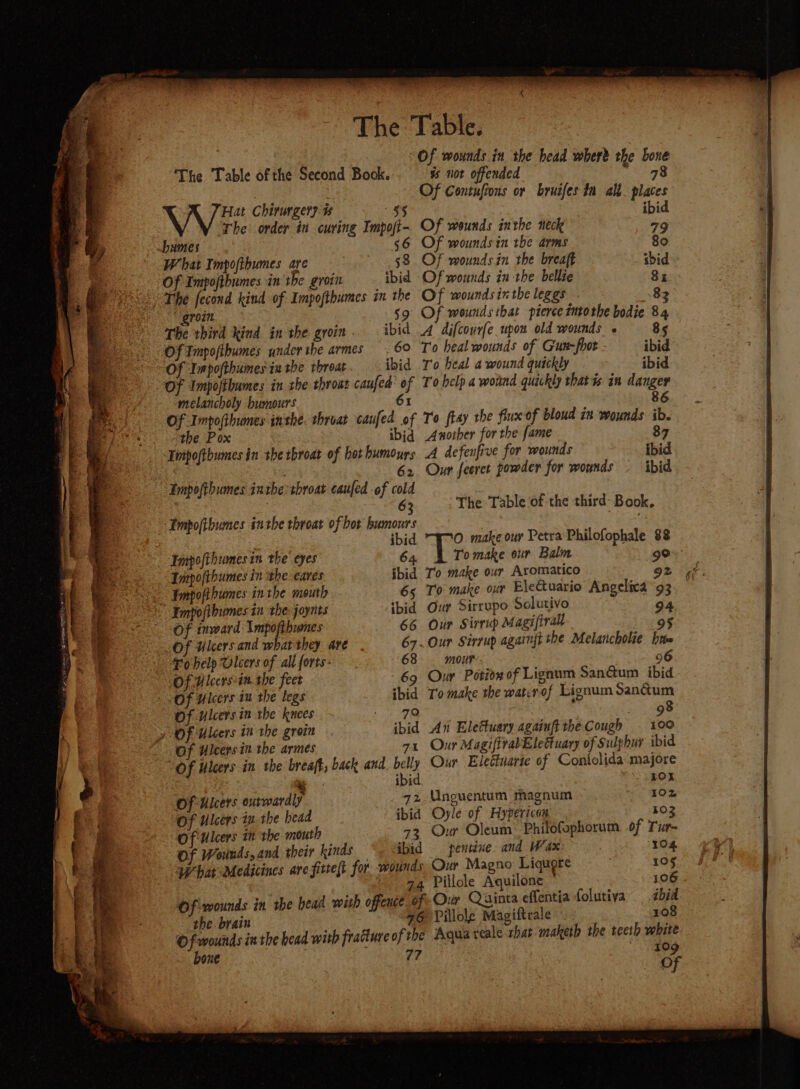 The Table.
The Table of the Second Book.
WHat Chirurgery is 55
The order in curing Impost-
humes 56
What Imposthumes are 58
Of Imposthumes in the groin ibid
The second kind of Imposthumes in the
groin 59
The third kind in the groin. ibid
Of Imposthumes under the armes 60
Of Imposthumes in the throat. ibid
Of Imposthumes in the throat caused of
melancholy humours 61
Of Imposthumes in the throat caused of
the Pox ibid
Imposthumes in the throat of hot humours
62
Imposthumes in the throat caused of cold
63
Imposthumes in the throat of hot humours
ibid
Imposthumes in the eyes 64
Imposthumes in the eares ibid
Imposthumes in the mouth 65
Imposthumes in the joynts ibid
Of inward Imposthumes 66
Of Ulcers and what they are 67
To help Ulcers of all sorts 68
Of Ulcers in the feet 69
Of Ulcers in the legs ibid
Of Ulcers in the knees 70
Of Ulcers in the groin ibid
Of Ulcers in the armes 71
Of Ulcers in the breast, back and belly
ibid
Of Ulcers outwardly 72
Of Ulcers in the head ibid
Of Ulcers in the mouth 73
Of Wounds, and their kinds ibid
What Medicines are fittest for wounds
74
Of wounds in the head with offence of
the brain 76
Of wounds in the head with fracture of the
bone 77
Of wounds in the head where the bone
is not offended 78
Of Contusions or bruises in all places
ibid
Of wounds in the neck 79
Of wounds in the arms 80
Of wounds in the breast ibid
Of wounds in the bellie 81
Of wounds in the leggs 83
Of wounds that pierce into the bodie 84
A discourse upon old wounds 85
To heal wounds of Gun-shot ibid
To heal a wound quickly ibid
To help a wound quickly that is in danger
86
To stay the flux of bloud in wounds ib.
Another for the same 87
A defensive for wounds ibid
Our secret powder for wounds ibid
The Table of the third Book.
TO make our Petra Philosophale 88
To make our Balm 90
To make our Aromatico 92
To make our Electuario Angelica 93
Our Sirrupo Solutivo 94
Our Sirrup Magistrall 95
Our Sirrup against the Melancholie hu-
mour 96
Our Potion of Lignum Sanctum ibid
To make the water of Lignum Sanctum
98
An Electuary against the Cough 100
Our Magistral Electuary of Sulphur ibid
Our Electuarie of Consolida majore
101
Unguentum magnum 102
Oyle of Hypericon 103
Our Oleum Philosophorum of Tur-
pentine and Wax 104
Our Magno Liquore 105
Pillole Aquilone 106
Our Quinta essentia solutiva ibid
Pillole Magistrale 108
Aqua reale that maketh the teeth white
109
Of